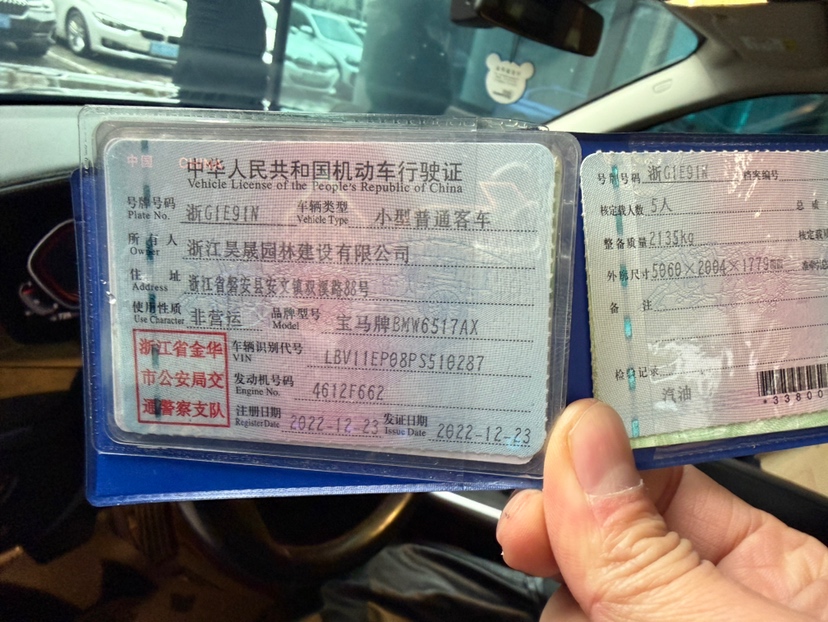 中国 CHINA
中华人民共和国机动车行驶证
Vehicle License of the People's Republic of China
号牌号码 浙G1E91N 车辆类型 小型普通客车
Plate No. Vehicle Type
所有人 浙江昊晟园林建设有限公司
Owner
住址 浙江省磐安县安文镇双溪路88号
Address
使用性质 非营运 品牌型号 宝马牌BMW6517AX
Use Character Model
浙江省金华
市公安局交
通警察支队
车辆识别代号 LBV11EP08PS510287
VIN
发动机号码 4612F662
Engine No.
注册日期 2022-12-23 发证日期 2022-12-23
Register Date Issue Date
号牌号码 浙G1E91N 档案编号
核定载人数 5人 总质
整备质量 2135kg 核定载质
外廓尺寸 5060×2004×1779
备注
检验记录
汽油
*33800